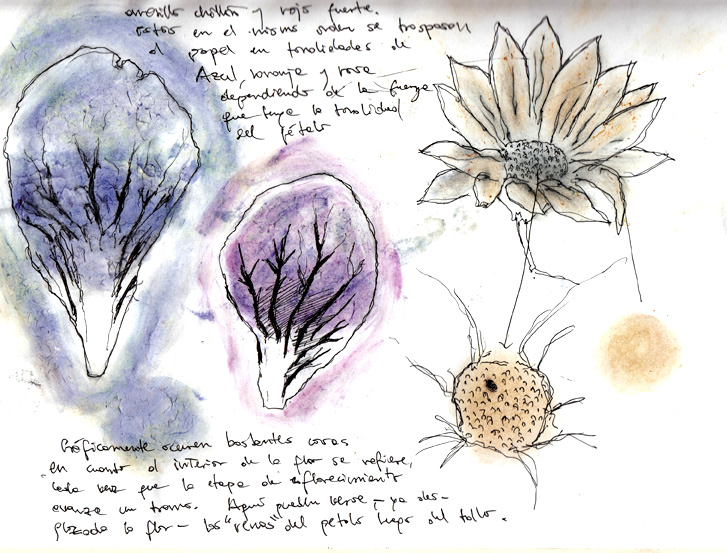 amarillo chillón y rojo fuerte.
Estos en el mismo orden se traspasan
al papel en tonalidades de
Azul, naranja y rosa
dependiendo de la fuerza
que tenga la tonalidad
del pétalo
Gráficamente ocurren bastantes cosas
en cuanto al interior de la flor se refiere,
cada vez que la etapa de florecimiento
avanza un tramo. Aquí pueden verse, - ya des-
plazada la flor - las "venas" del pétalo luego del tallo.